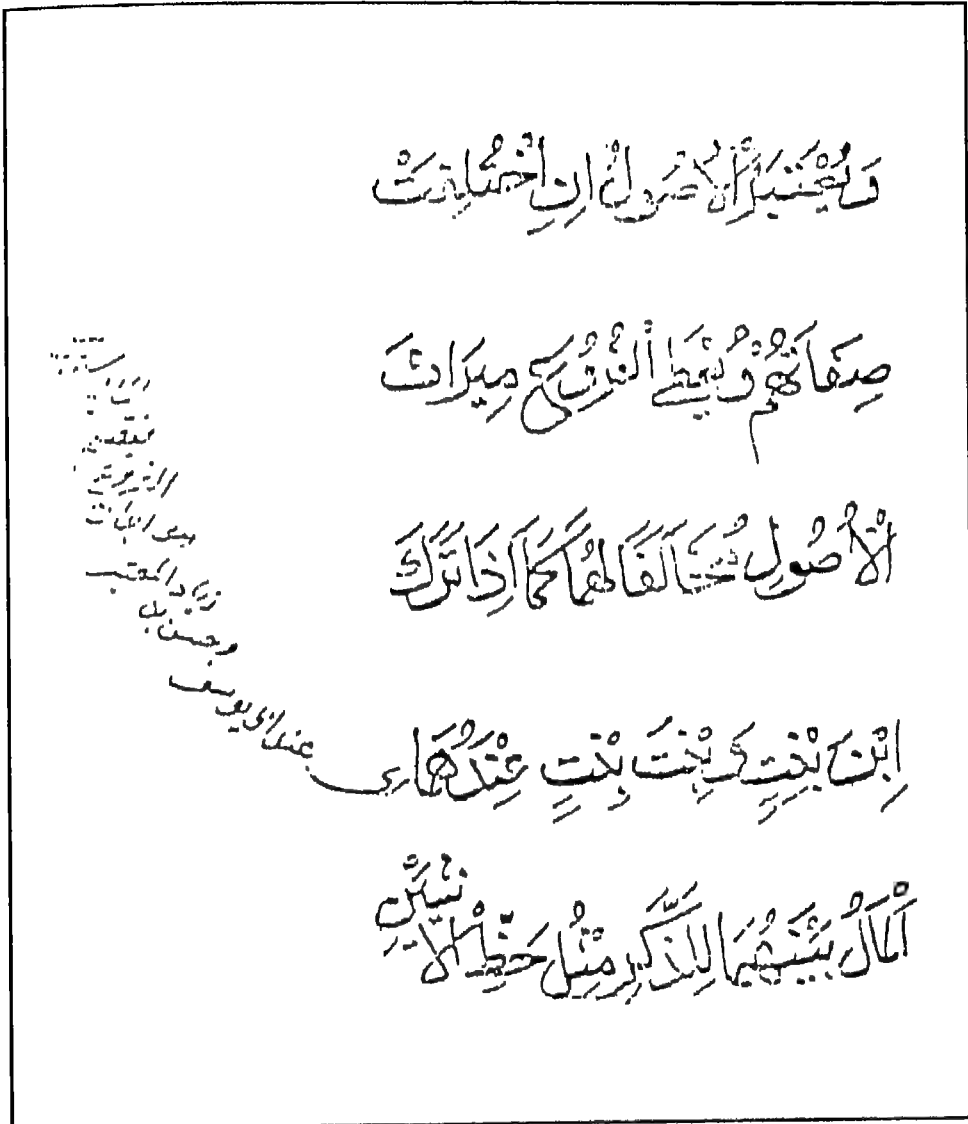 وَيُعْتَبَرُ الْأُصُولُ إِنِ اخْتَلَفَتْ
صِفَاتُهُمْ وَيُعْطَى الْفُرُوعُ مِيرَاثَ
الْأُصُولِ مُخَالَفًا لَهُمَا كَمَا إِذَا تَرَكَ
ابْنَ بِنْتٍ وَبِنْتَ بِنْتٍ عِنْدَهُمَا
اَلْمَالُ بَيْنَهُمَا لِلذَّكَرِ مِثْلُ حَظِّ الْأُنْثَيَيْنِ
عند ابى يوسف
وحسن بن
زياد